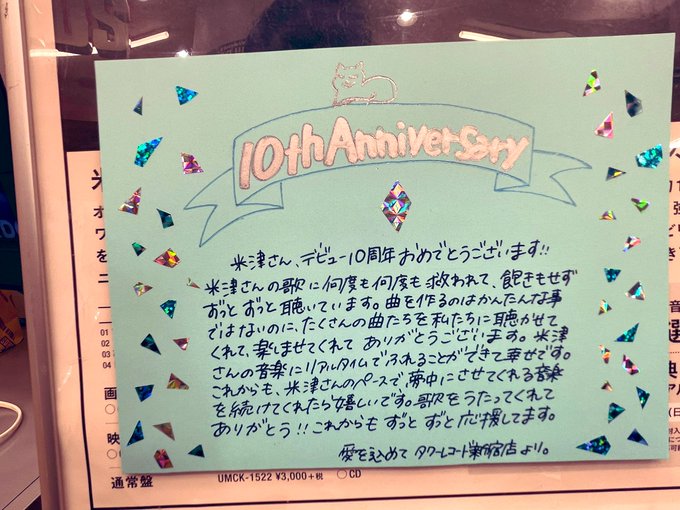 10th Anniversary
米津さん、デビュー10周年おめでとうございます!!
米津さんの歌に何度も何度も救われて、飽きもせず
ずっとずっと聴いています。曲を作るのはかんたんな事
ではないのに、たくさんの曲たちを私たちに聴かせて
くれて、楽しませてくれてありがとうございます。米津
さんの音楽にリアルタイムでふれることができて幸せです。
これからも、米津さんのペースで、夢中にさせてくれる音楽
を続けてくれたら嬉しいです。歌をうたってくれて
ありがとう!!これからもずっとずっと応援してます。
愛を込めて タワーレコード新宿店より。
01
02
03
04
通常盤 UMCK-1522 ¥3,000+税 〇CD